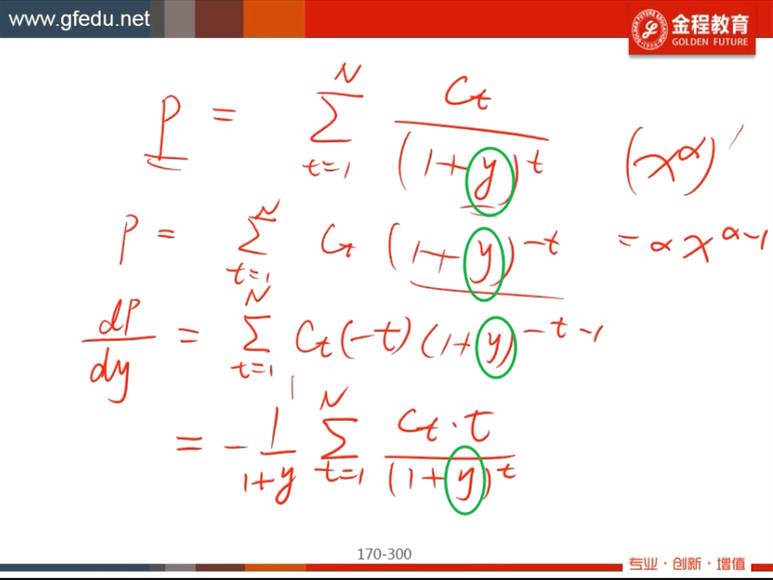 www.gfedu.net
金程教育
GOLDEN FUTURE
P = \sum_{t=1}^{N} \frac{C_t}{(1+y)^t}
(x^α)'
P = \sum_{t=1}^{N} C_t (1+y)^{-t}
= α x^{α-1}
\frac{dP}{dy} = \sum_{t=1}^{N} C_t (-t) (1+y)^{-t-1}
= -\frac{1}{1+y} \sum_{t=1}^{N} \frac{C_t · t}{(1+y)^t}
170-300
专业·创新·增值